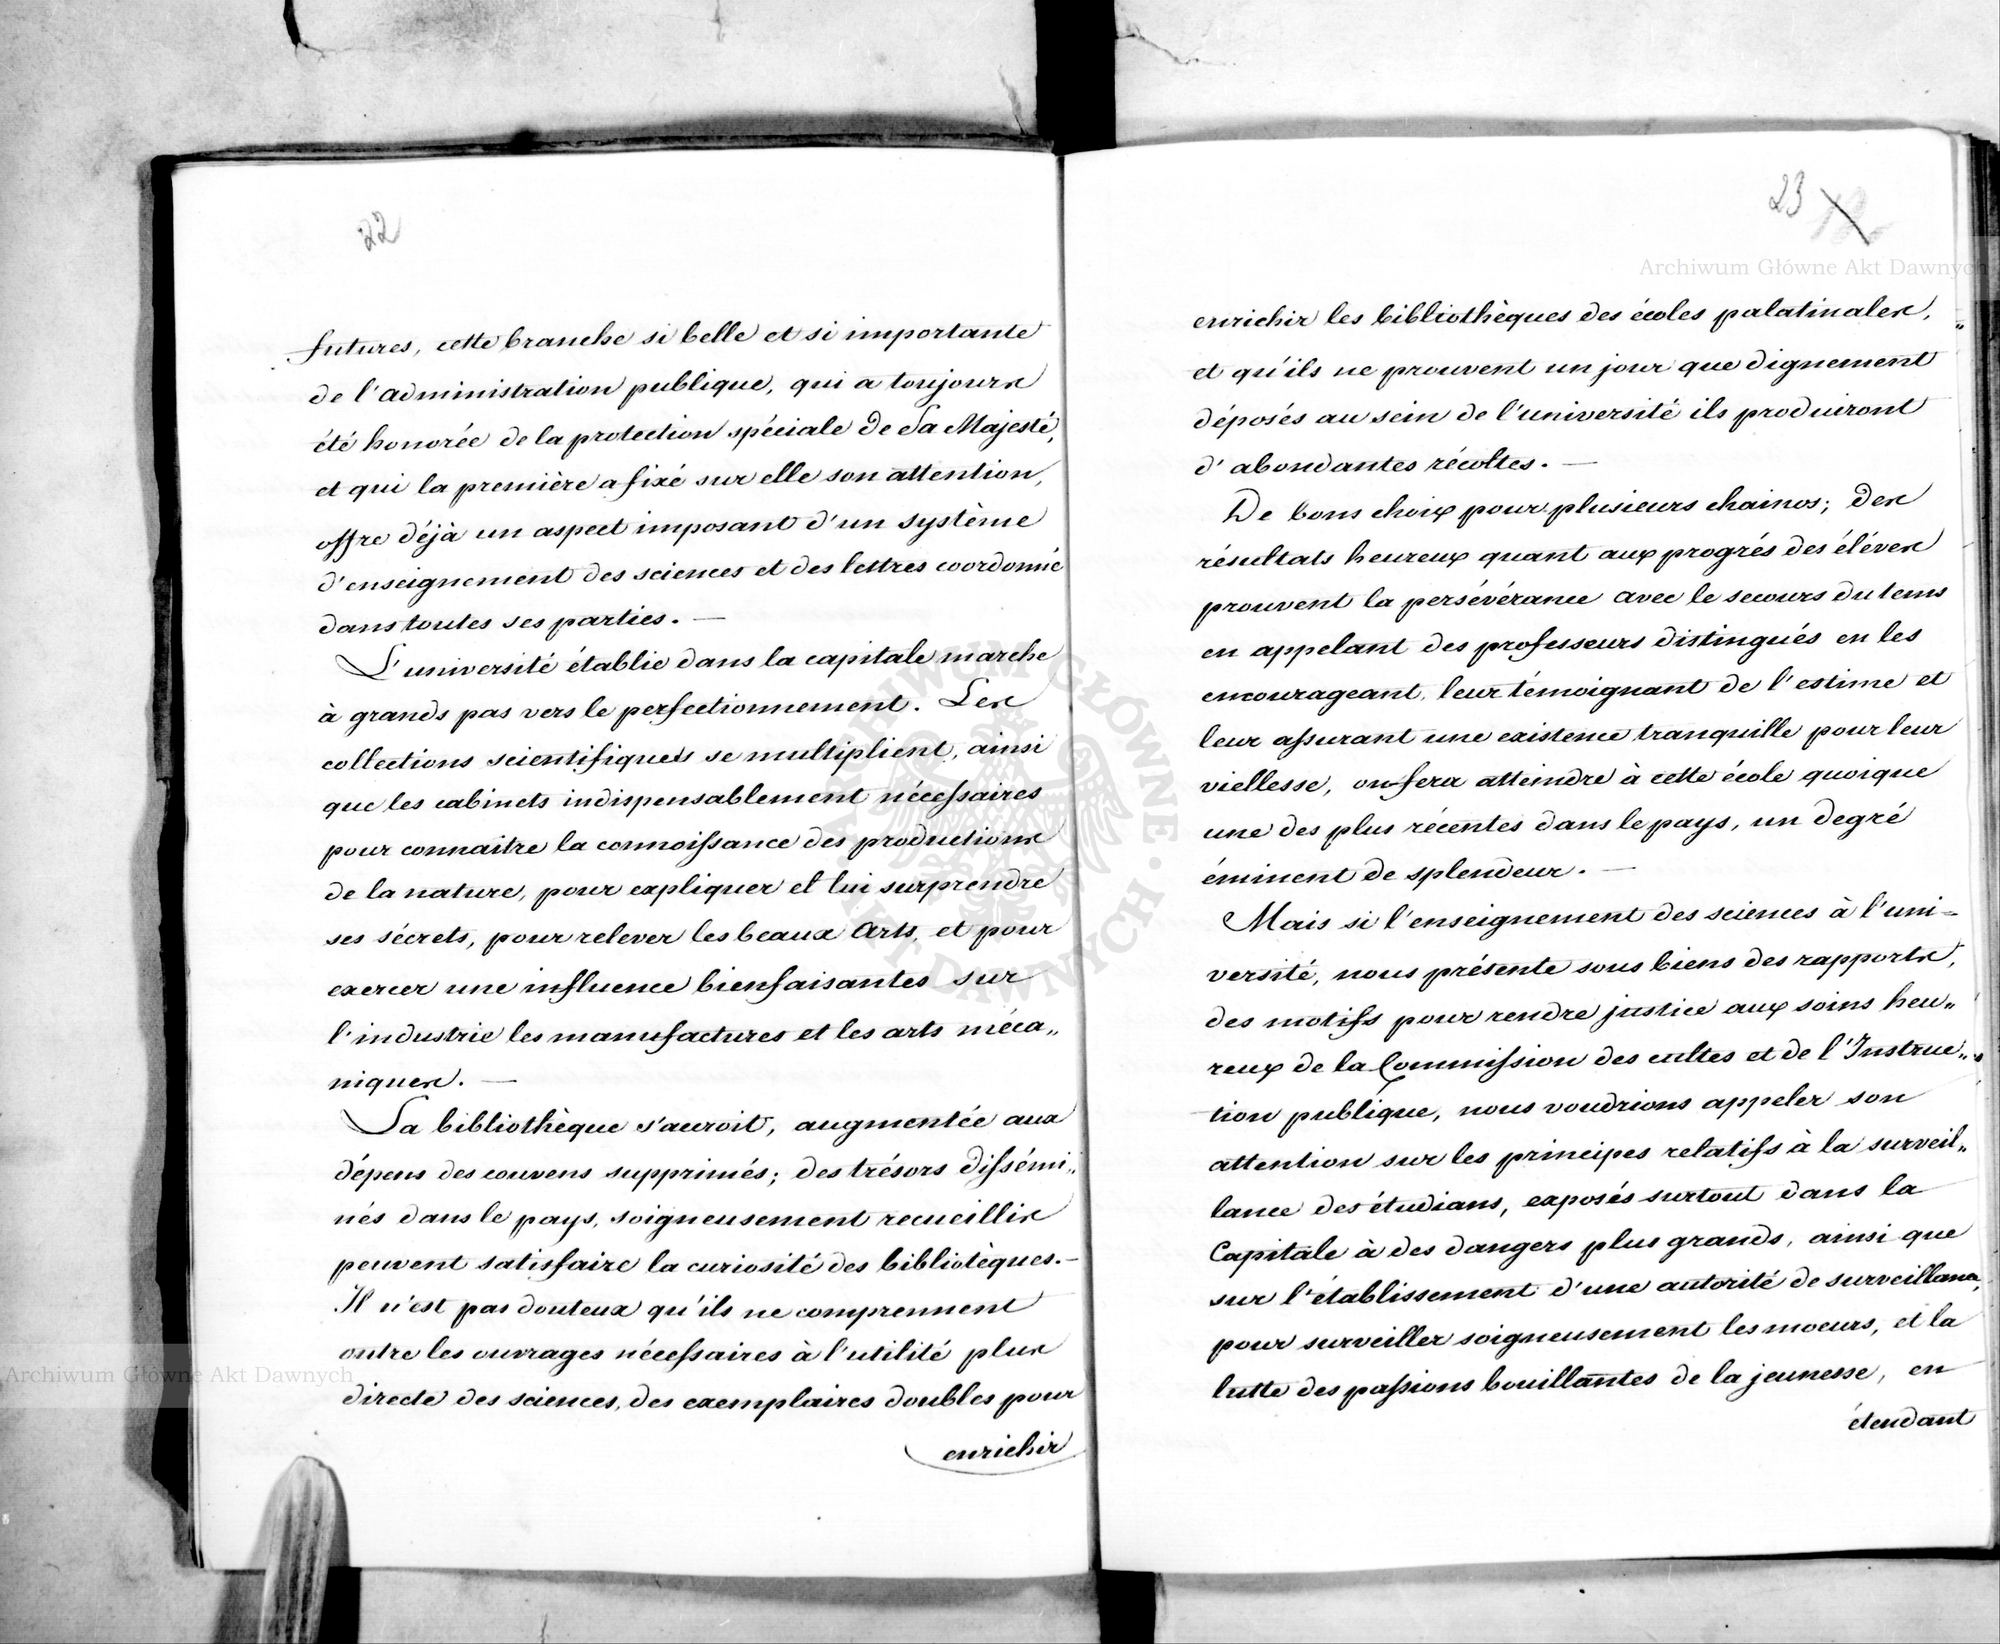 22
futures, cette branche si belle et si importante
de l'administration publique, qui a toujours
été honorée de la protection spéciale de Sa Majesté,
et qui la première a fixé sur elle son attention,
offre déjà un aspect imposant d'un système
d'enseignement des sciences et des lettres coordonné
dans toutes ses parties. —
L'université établie dans la capitale marche
à grands pas vers le perfectionnement. Les
collections scientifiques se multiplient, ainsi
que les cabinets indispensablement nécessaires
pour connaitre la connoissance des productions
de la nature, pour expliquer et lui surprendre
ses sécrets, pour relever les beaux Arts, et pour
exercer une influence bienfaisantes sur
l'industrie les manufactures et les arts méca„
niques. —
La bibliothèque s'accroit, augmentée aux
dépens des couvens supprimés; des trésors dissémi„
nés dans le pays, soigneusement recueillis
peuvent satisfaire la curiosité des bibliotèques. —
Il n'est pas douteux qu'ils ne comprennent
outre les ouvrages nécessaires à l'utilité plus
directe des sciences, des exemplaires doubles pour
enrichir
23
enrichir les bibliothèques des écoles palatinales,
et qu'ils ne prouvent un jour que dignement
déposés au sein de l'université ils produiront
d'abondantes récoltes. —
De bons choix pour plusieurs chaires; des
résultats heureux quant aux progrés des élèves
prouvent la persévérance avec le secours du tems
en appelant des professeurs distingués en les
encourageant, leur témoignant de l'estime et
leur assurant une existence tranquille pour leur
viellesse, on fera atteindre à cette école quoique
une des plus récentes dans le pays, un degré
éminent de splendeur. —
Mais si l'enseignement des sciences à l'uni=
versité, nous présente sous biens des rapports,
des motifs pour rendre justice aux soins heu„
reux de la Commission des cultes et de l'Instruc„
tion publique, nous voudrions appeler son
attention sur les principes relatifs à la surveil„
lance des étudians, exposés surtout dans la
Capitale à des dangers plus grands, ainsi que
sur l'établissement d'une autorité de surveillance,
pour surveiller soigneusement les moeurs, et la
lutte des passions bouillantes de la jeunesse, en
étendant
Archiwum Główne Akt Dawnych
Archiwum Główne Akt Dawnych
ARCHIWUM GŁÓWNE AKT DAWNYCH